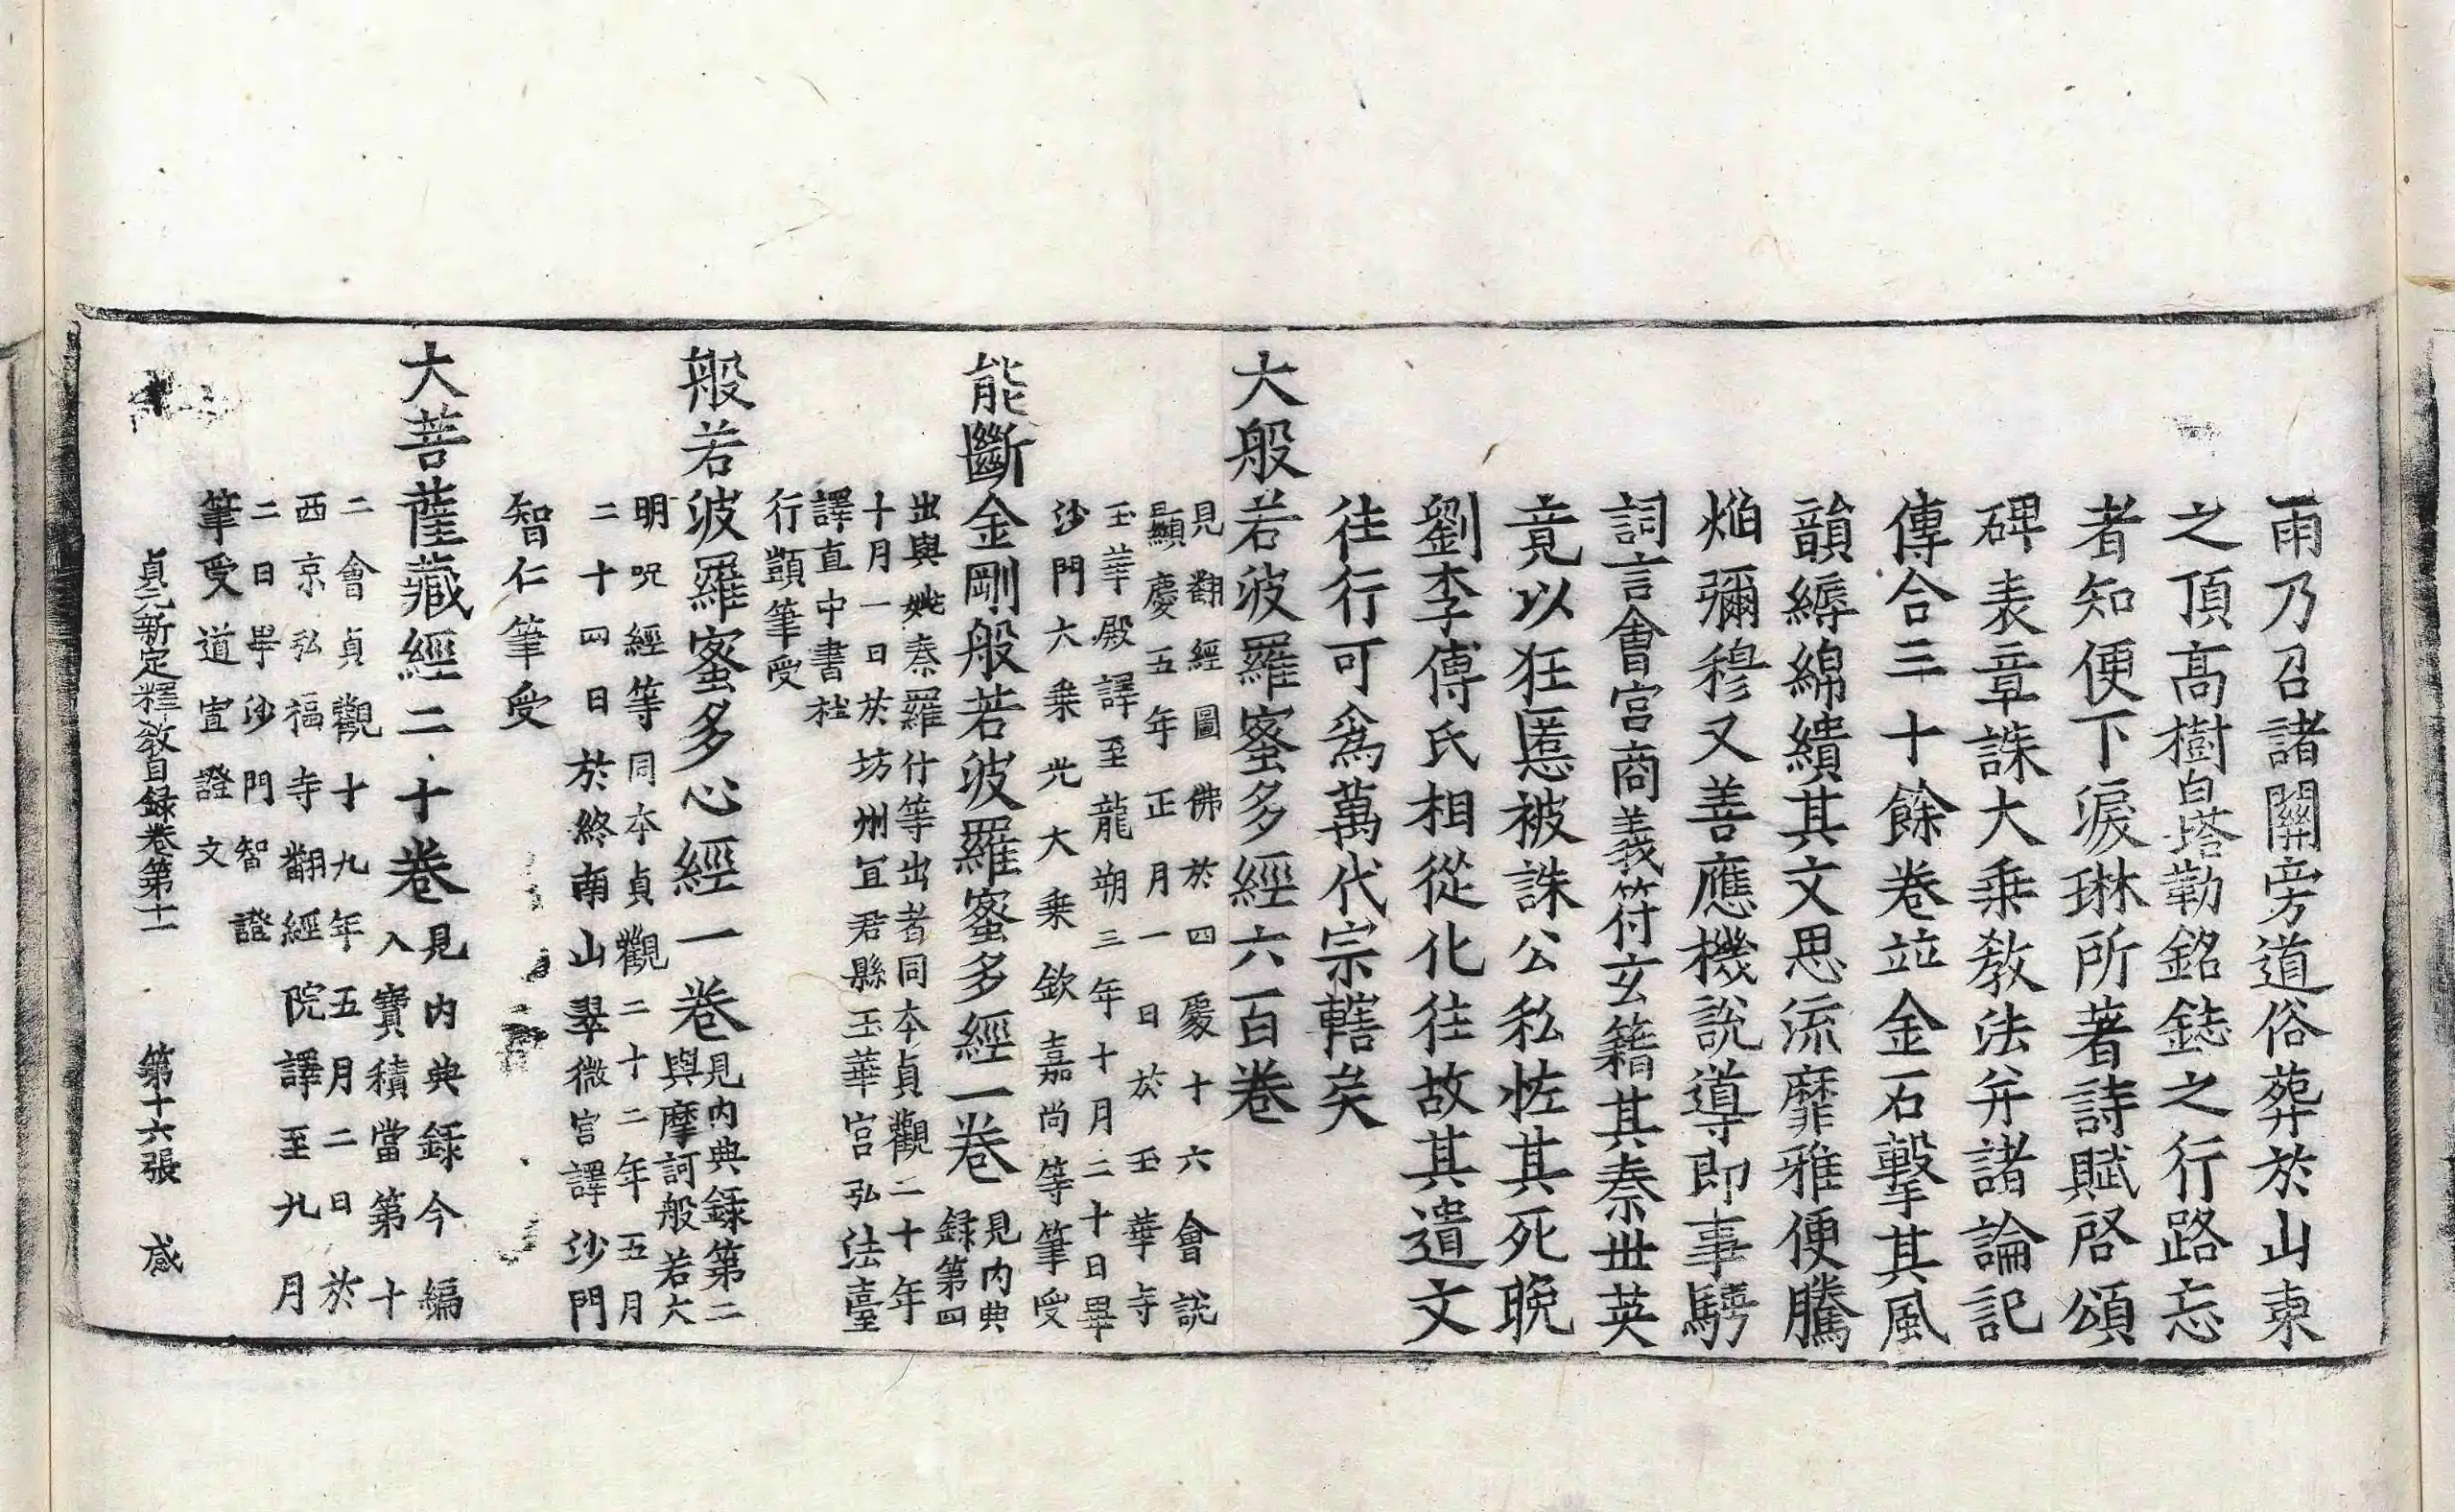 雨乃召諸關旁道俗葬於山東
之頂高樹白塔勒銘誌之行路忘
者知便下淚琳所著詩賦啓頌
碑表章誄大乗教法并諸論記
傳合三十餘卷竝金石擊其風
韻縟綿繢其文思流靡雅便騰
焔彌穆又善應機說導即事騁
詞言會宮商義符玄籍其奏丗英
竟以狂慝被誅公私恠其死晚
劉李傅氏相從化往故其遺文
徃行可爲萬代宗轄矣
大般若波羅蜜多經六百卷
見翻經圖佛於四處十六會說
顯慶五年正月一日於玉華寺
玉華殿譯至龍朔三年十月二十日畢
沙門大乗光大乗欽嘉尚等筆受
能斷金剛般若波羅蜜多經一卷
見内典
録第四
出與姚秦羅什等出者同夲貞觀二十年
十月一日於坊州宜君縣玉華宮弘法臺
譯直中書杜
行顗筆受
般若波羅蜜多心經一卷
見内典録第二
與摩訶般若大
明呪經等同夲貞觀二十二年五月
二十四日於終南山翠微宮譯沙門
智仁筆受
大菩薩藏經二十卷
見内典録今編
入寶積當第十
二會貞觀十九年五月二日於
西京弘福寺翻經院譯至九月
二日畢沙門智證
筆受道宣證文
貞元新定釋教目録卷第十一 第十六張 感